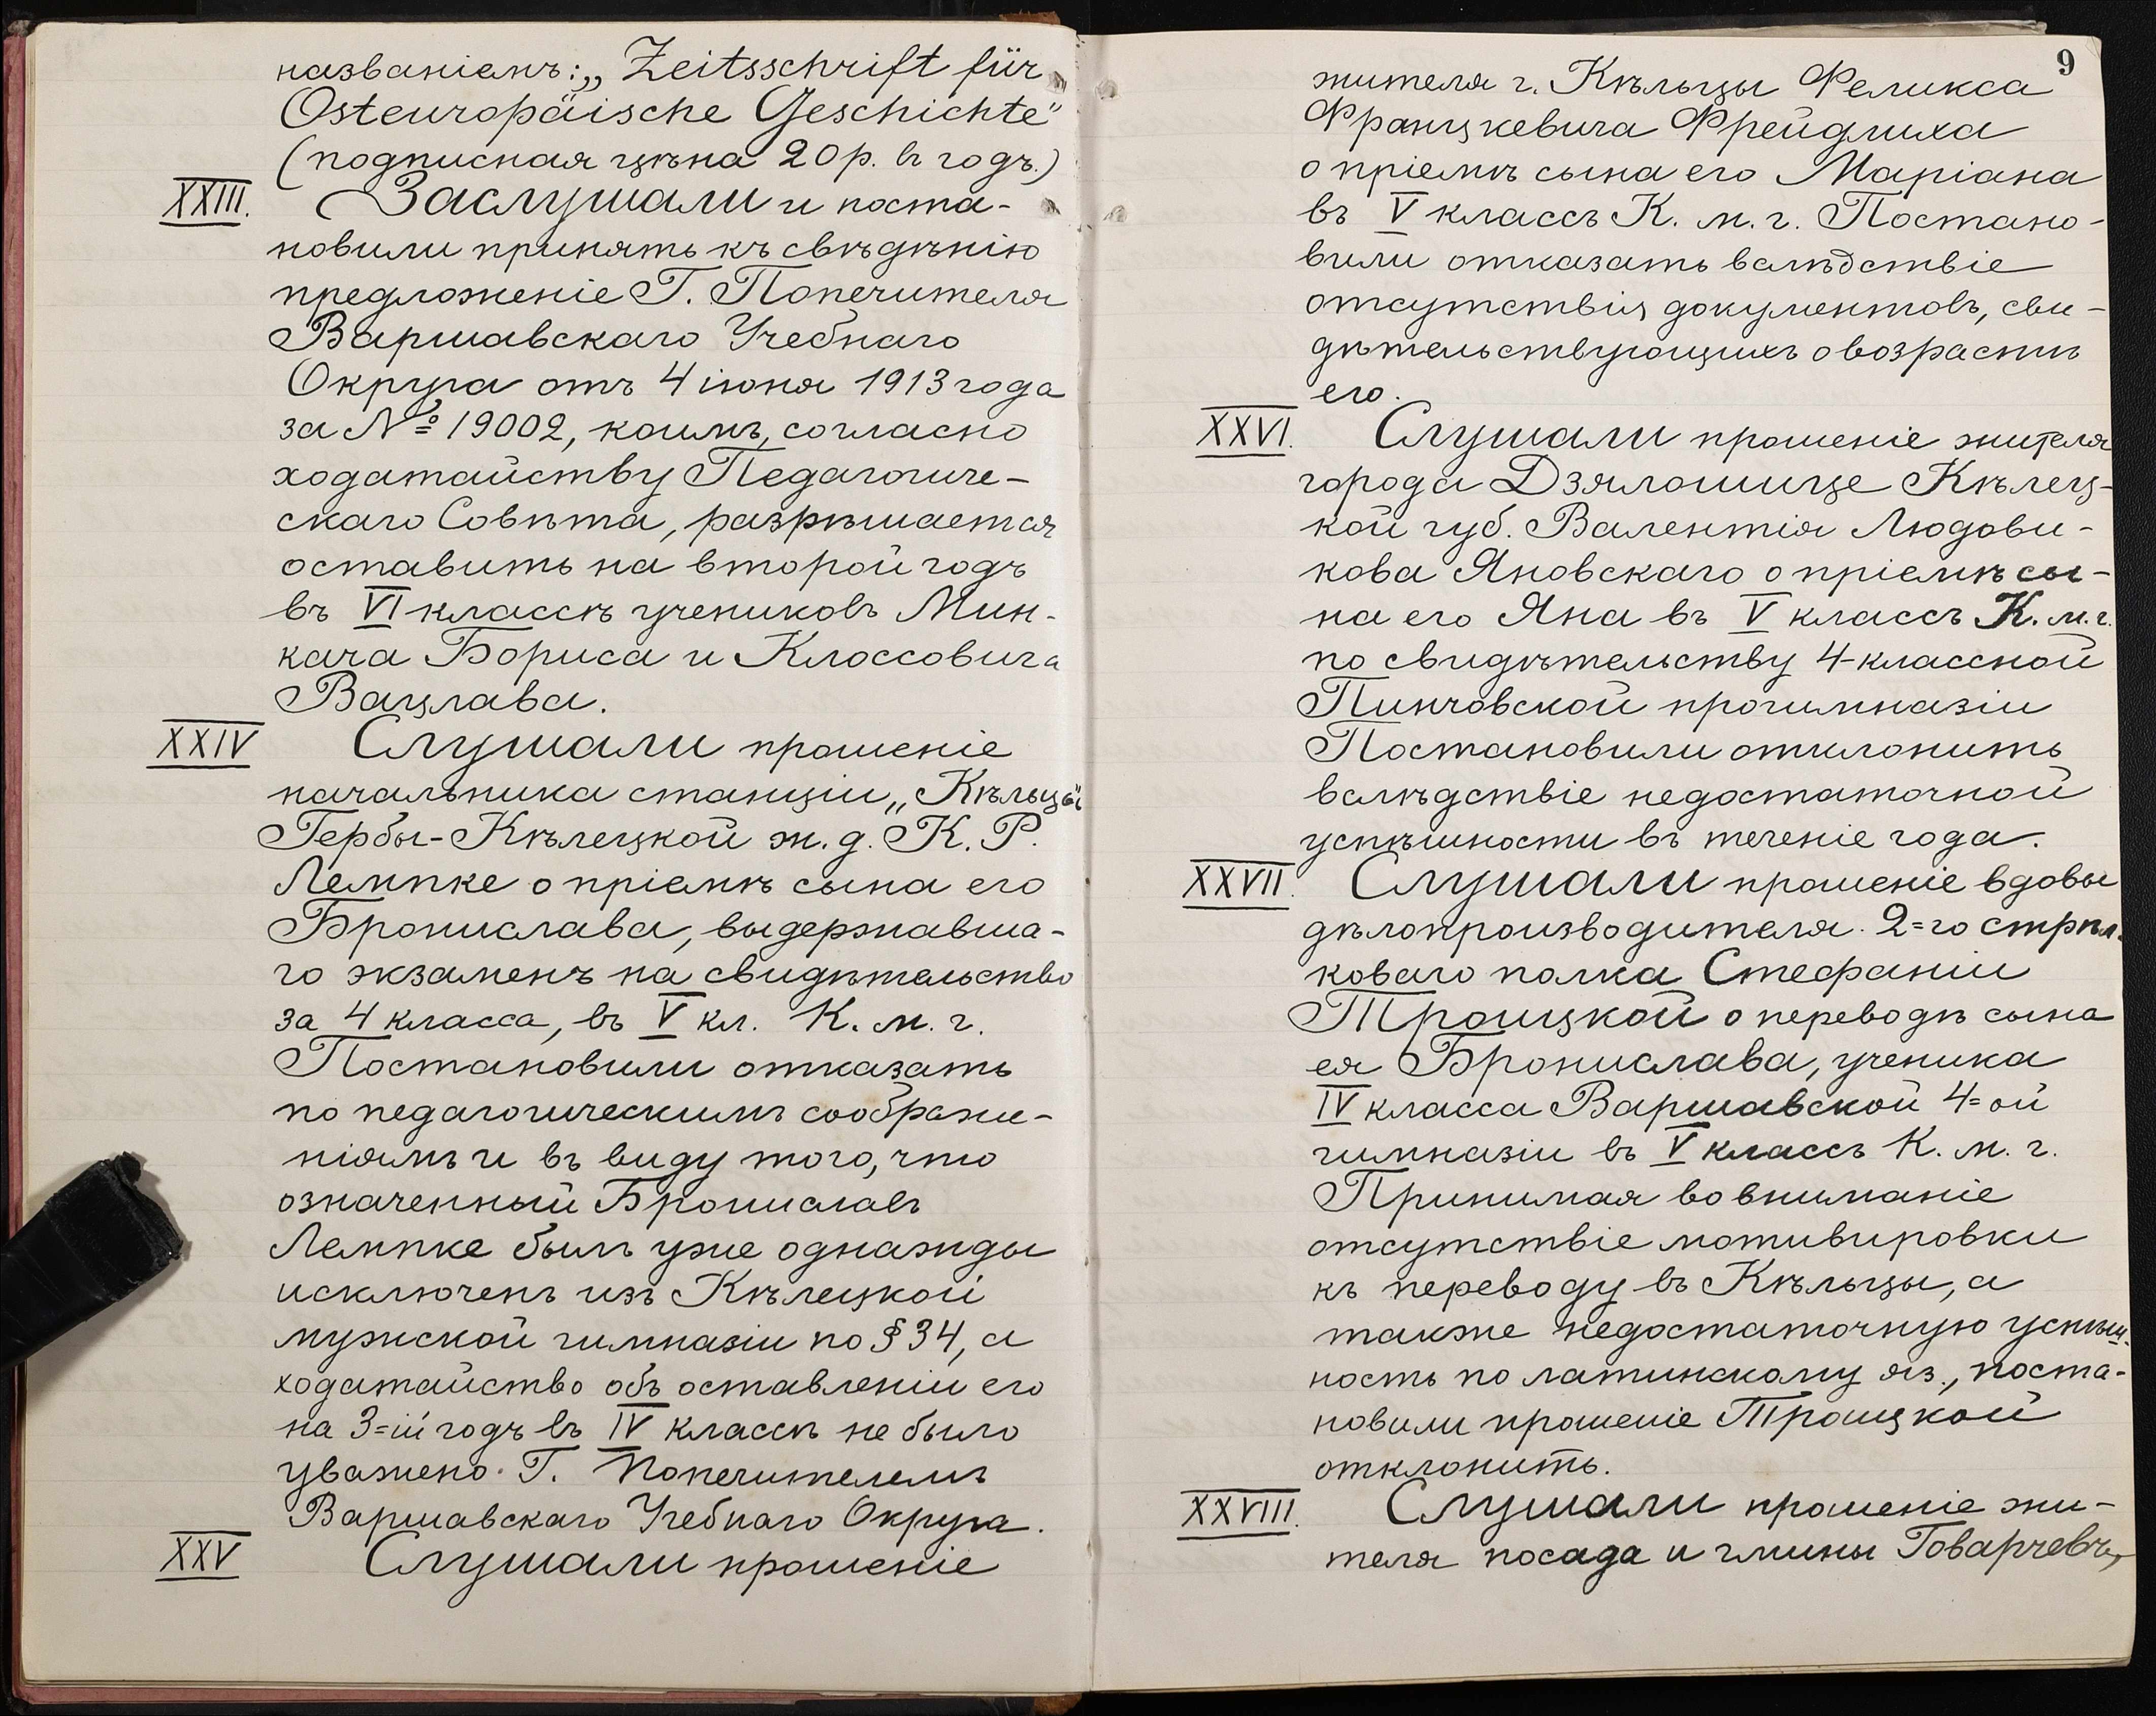 названіемъ: „Zeitsschrift für
Osteuropäische Geschichte"
(подписная цѣна 20 р. въ годъ.)
XXIII. Заслушали и поста-
новили принять къ свѣдѣнію
предложеніе Г. Попечителя
Варшавскаго Учебнаго
Округа отъ 4 іюня 1913 года
за № 19002, коимъ, согласно
ходатайству Педагогиче-
скаго Совѣта, разрѣшается
оставить на второй годъ
въ VI классѣ учениковъ Мин-
кача Бориса и Клоссовича
Вацлава.
XXIV Слушали прошеніе
начальника станціи „Кѣльцы"
Гербы-Кѣлецкой ж. д. К. Р.
Лемпке о пріемѣ сына его
Бронислава, выдержавша-
го экзаменъ на свидѣтельство
за 4 класса, въ V кл. К. м. г.
Постановили отказать
по педагогическимъ соображе-
ніямъ и въ виду того, что
означенный Брониславъ
Лемпке былъ уже однажды
исключенъ изъ Кѣлецкой
мужской гимназіи по § 34, а
ходатайство объ оставленіи его
на 3=ій годъ въ IV классѣ не было
уважено Г. Попечителемъ
Варшавскаго Учебнаго Округа.
XXV Слушали прошеніе
9
жителя г. Кѣльцы Феликса
Францкевича Фрейдлиха
о пріемѣ сына его Маріана
въ V классъ К. м. г. Постано-
вили отказать вслѣдствіе
отсутствія документовъ, сви-
дѣтельствующихъ о возрастѣ
его.
XXVI. Слушали прошеніе жителя
города Дзялошице Кѣлец-
кой губ. Валентія Людови-
кова Яновскаго о пріемѣ сы-
на его Яна въ V классъ К. м. г.
по свидѣтельству 4-классной
Пинчовской прогимназіи
Постановили отклонить
вслѣдствіе недостаточной
успѣшности въ теченіе года.
XXVII. Слушали прошеніе вдовы
дѣлопроизводителя 2=го стрѣл-
коваго полка Стефаніи
Троицкой о переводѣ сына
ея Бронислава, ученика
IV класса Варшавской 4=ой
гимназіи въ V классъ К. м. г.
Принимая во вниманіе
отсутствіе мотивировки
къ переводу въ Кѣльцы, а
также недостаточную успѣш-
ность по латинскому яз., поста-
новили прошеніе Троицкой
отклонить.
XXVIII. Слушали прошеніе жи-
теля посада и гмины Говарчевъ,